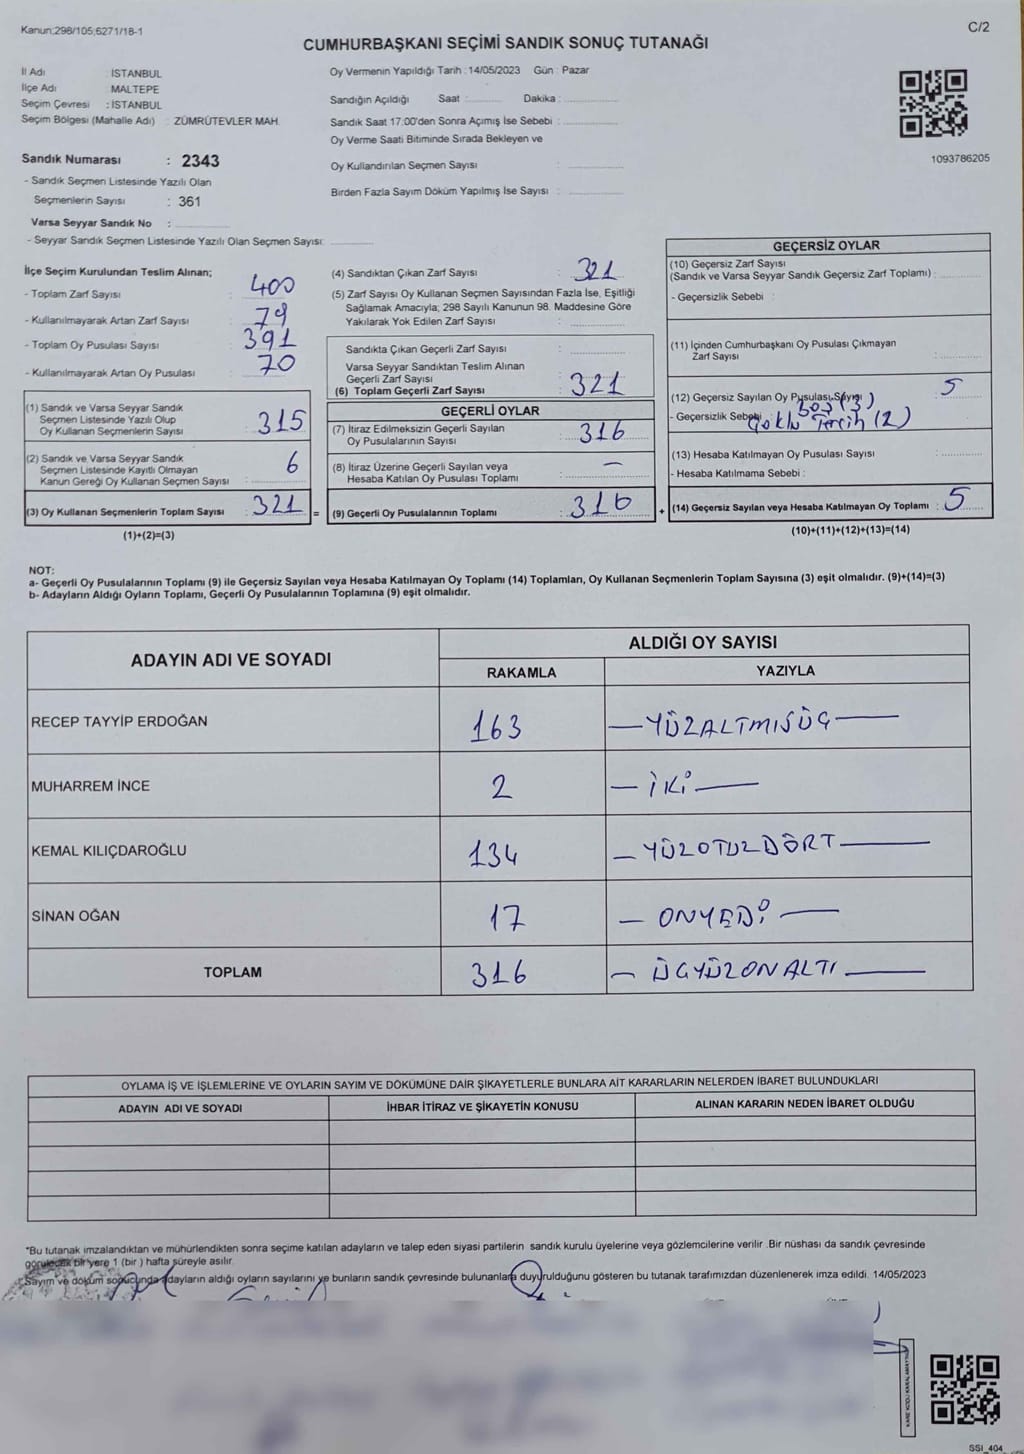 Kanun;298/105;6271/18-1
C/2
CUMHURBAŞKANI SEÇİMİ SANDIK SONUÇ TUTANAĞI
İl Adı : İSTANBUL
İlçe Adı : MALTEPE
Seçim Çevresi : İSTANBUL
Seçim Bölgesi (Mahalle Adı) : ZÜMRÜTEVLER MAH.
Sandık Numarası : 2343
- Sandık Seçmen Listesinde Yazılı Olan
Seçmenlerin Sayısı : 361
Varsa Seyyar Sandık No :
- Seyyar Sandık Seçmen Listesinde Yazılı Olan Seçmen Sayısı:
Oy Vermenin Yapıldığı Tarih : 14/05/2023 Gün : Pazar
Sandığın Açıldığı Saat : Dakika :
Sandık Saat 17:00'den Sonra Açımış İse Sebebi :
Oy Verme Saati Bitiminde Sırada Bekleyen ve
Oy Kullandırılan Seçmen Sayısı :
Birden Fazla Sayım Döküm Yapılmış İse Sayısı :
1093786205
İlçe Seçim Kurulundan Teslim Alınan;
- Toplam Zarf Sayısı : 400
- Kullanılmayarak Artan Zarf Sayısı : 79
- Toplam Oy Pusulası Sayısı : 391
- Kullanılmayarak Artan Oy Pusulası : 70
(1) Sandık ve Varsa Seyyar Sandık
Seçmen Listesinde Yazılı Olup
Oy Kullanan Seçmenlerin Sayısı : 315
(2) Sandık ve Varsa Seyyar Sandık
Seçmen Listesinde Kayıtlı Olmayan
Kanun Gereği Oy Kullanan Seçmen Sayısı : 6
(3) Oy Kullanan Seçmenlerin Toplam Sayısı : 321 =
(1)+(2)=(3)
(4) Sandıktan Çıkan Zarf Sayısı : 321
(5) Zarf Sayısı Oy Kullanan Seçmen Sayısından Fazla İse, Eşitliği
Sağlamak Amacıyla; 298 Sayılı Kanunun 98. Maddesine Göre
Yakılarak Yok Edilen Zarf Sayısı :
Sandıkta Çıkan Geçerli Zarf Sayısı :
Varsa Seyyar Sandıktan Teslim Alınan
Geçerli Zarf Sayısı :
(6) Toplam Geçerli Zarf Sayısı : 321
GEÇERLİ OYLAR
(7) İtiraz Edilmeksizin Geçerli Sayılan
Oy Pusulalarının Sayısı : 316
(8) İtiraz Üzerine Geçerli Sayılan veya
Hesaba Katılan Oy Pusulası Toplamı : —
(9) Geçerli Oy Pusulalarının Toplamı : 316 +
GEÇERSİZ OYLAR
(10) Geçersiz Zarf Sayısı
(Sandık ve Varsa Seyyar Sandık Geçersiz Zarf Toplamı) :
- Geçersizlik Sebebi :
(11) İçinden Cumhurbaşkanı Oy Pusulası Çıkmayan
Zarf Sayısı :
(12) Geçersiz Sayılan Oy Pusulası Sayısı : 5
BOŞ (3)
- Geçersizlik Sebebi : Çoklu Tercih (2)
(13) Hesaba Katılmayan Oy Pusulası Sayısı :
- Hesaba Katılmama Sebebi :
(14) Geçersiz Sayılan veya Hesaba Katılmayan Oy Toplamı : 5
(10)+(11)+(12)+(13)=(14)
NOT:
a- Geçerli Oy Pusulalarının Toplamı (9) ile Geçersiz Sayılan veya Hesaba Katılmayan Oy Toplamı (14) Toplamları, Oy Kullanan Seçmenlerin Toplam Sayısına (3) eşit olmalıdır. (9)+(14)=(3)
b- Adayların Aldığı Oyların Toplamı, Geçerli Oy Pusulalarının Toplamına (9) eşit olmalıdır.
ADAYIN ADI VE SOYADI
ALDIĞI OY SAYISI
RAKAMLA YAZIYLA
RECEP TAYYİP ERDOĞAN 163 — YÜZALTMIŞÜÇ —
MUHARREM İNCE 2 — İKİ —
KEMAL KILIÇDAROĞLU 134 — YÜZOTUZDÖRT —
SİNAN OĞAN 17 — ONYEDİ —
TOPLAM 316 — ÜÇYÜZONALTI —
OYLAMA İŞ VE İŞLEMLERİNE VE OYLARIN SAYIM VE DÖKÜMÜNE DAİR ŞİKAYETLERLE BUNLARA AİT KARARLARIN NELERDEN İBARET BULUNDUKLARI
ADAYIN ADI VE SOYADI İHBAR İTİRAZ VE ŞİKAYETİN KONUSU ALINAN KARARIN NEDEN İBARET OLDUĞU
*Bu tutanak imzalandıktan ve mühürlendikten sonra seçime katılan adayların ve talep eden siyasi partilerin sandık kurulu üyelerine veya gözlemcilerine verilir. Bir nüshası da sandık çevresinde
görülecek bir yere 1 (bir ) hafta süreyle asılır.
*Sayım ve döküm sonucunda adayların aldığı oyların sayılarını ve bunların sandık çevresinde bulunanlara duyurulduğunu gösteren bu tutanak tarafımızdan düzenlenerek imza edildi. 14/05/2023
KARE KODU KARALAMAYINIZ
SSI_404